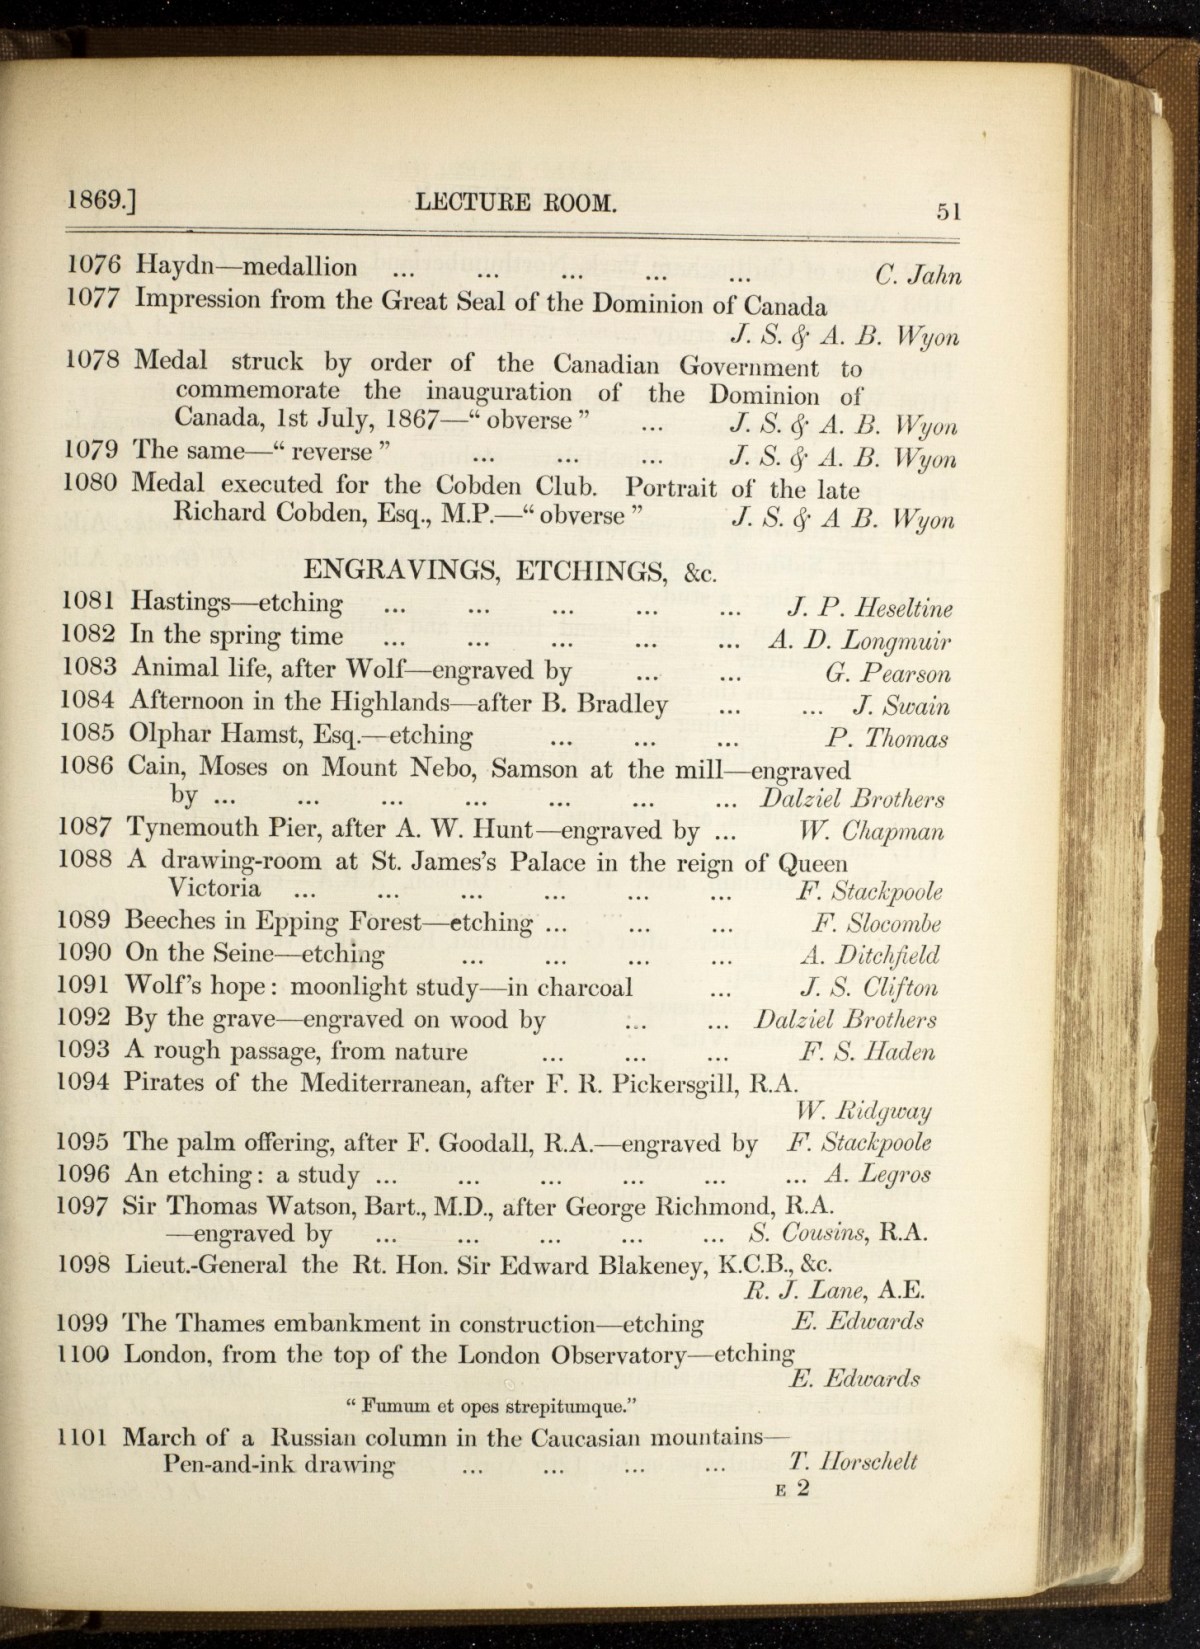 1869.] LECTURE ROOM. 51
1076 Haydn—medallion ... ... ... ... ... C. Jahn
1077 Impression from the Great Seal of the Dominion of Canada
J. S. & A. B. Wyon
1078 Medal struck by order of the Canadian Government to
commemorate the inauguration of the Dominion of
Canada, 1st July, 1867—“ obverse ” ... J. S. & A. B. Wyon
1079 The same—“ reverse ” ... ... ... J. S. & A. B. Wyon
1080 Medal executed for the Cobden Club. Portrait of the late
Richard Cobden, Esq., M.P.—“ obverse ” J. S. & A B. Wyon
ENGRAVINGS, ETCHINGS, &c.
1081 Hastings—etching ... ... ... ... ... J. P. Heseltine
1082 In the spring time ... ... ... ... ... A. D. Longmuir
1083 Animal life, after Wolf—engraved by ... ... G. Pearson
1084 Afternoon in the Highlands—after B. Bradley ... ... J. Swain
1085 Olphar Hamst, Esq.—etching ... ... ... P. Thomas
1086 Cain, Moses on Mount Nebo, Samson at the mill—engraved
by ... ... ... ... ... ... ... Dalziel Brothers
1087 Tynemouth Pier, after A. W. Hunt—engraved by ... W. Chapman
1088 A drawing-room at St. James’s Palace in the reign of Queen
Victoria ... ... ... ... ... ... F. Stackpoole
1089 Beeches in Epping Forest—etching ... ... ... F. Slocombe
1090 On the Seine—etching ... ... ... ... A. Ditchfield
1091 Wolf’s hope : moonlight study—in charcoal ... J. S. Clifton
1092 By the grave—engraved on wood by ... ... Dalziel Brothers
1093 A rough passage, from nature ... ... ... F. S. Haden
1094 Pirates of the Mediterranean, after F. R. Pickersgill, R.A.
W. Ridgway
1095 The palm offering, after F. Goodall, R.A.—engraved by F. Stackpoole
1096 An etching : a study ... ... ... ... ... ... A. Legros
1097 Sir Thomas Watson, Bart., M.D., after George Richmond, R.A.
—engraved by ... ... ... ... ... S. Cousins, R.A.
1098 Lieut.-General the Rt. Hon. Sir Edward Blakeney, K.C.B., &c.
R. J. Lane, A.E.
1099 The Thames embankment in construction—etching E. Edwards
1100 London, from the top of the London Observatory—etching
E. Edwards
“ Fumum et opes strepitumque.”
1101 March of a Russian column in the Caucasian mountains—
Pen-and-ink drawing ... ... ... ... T. Horschelt
E 2